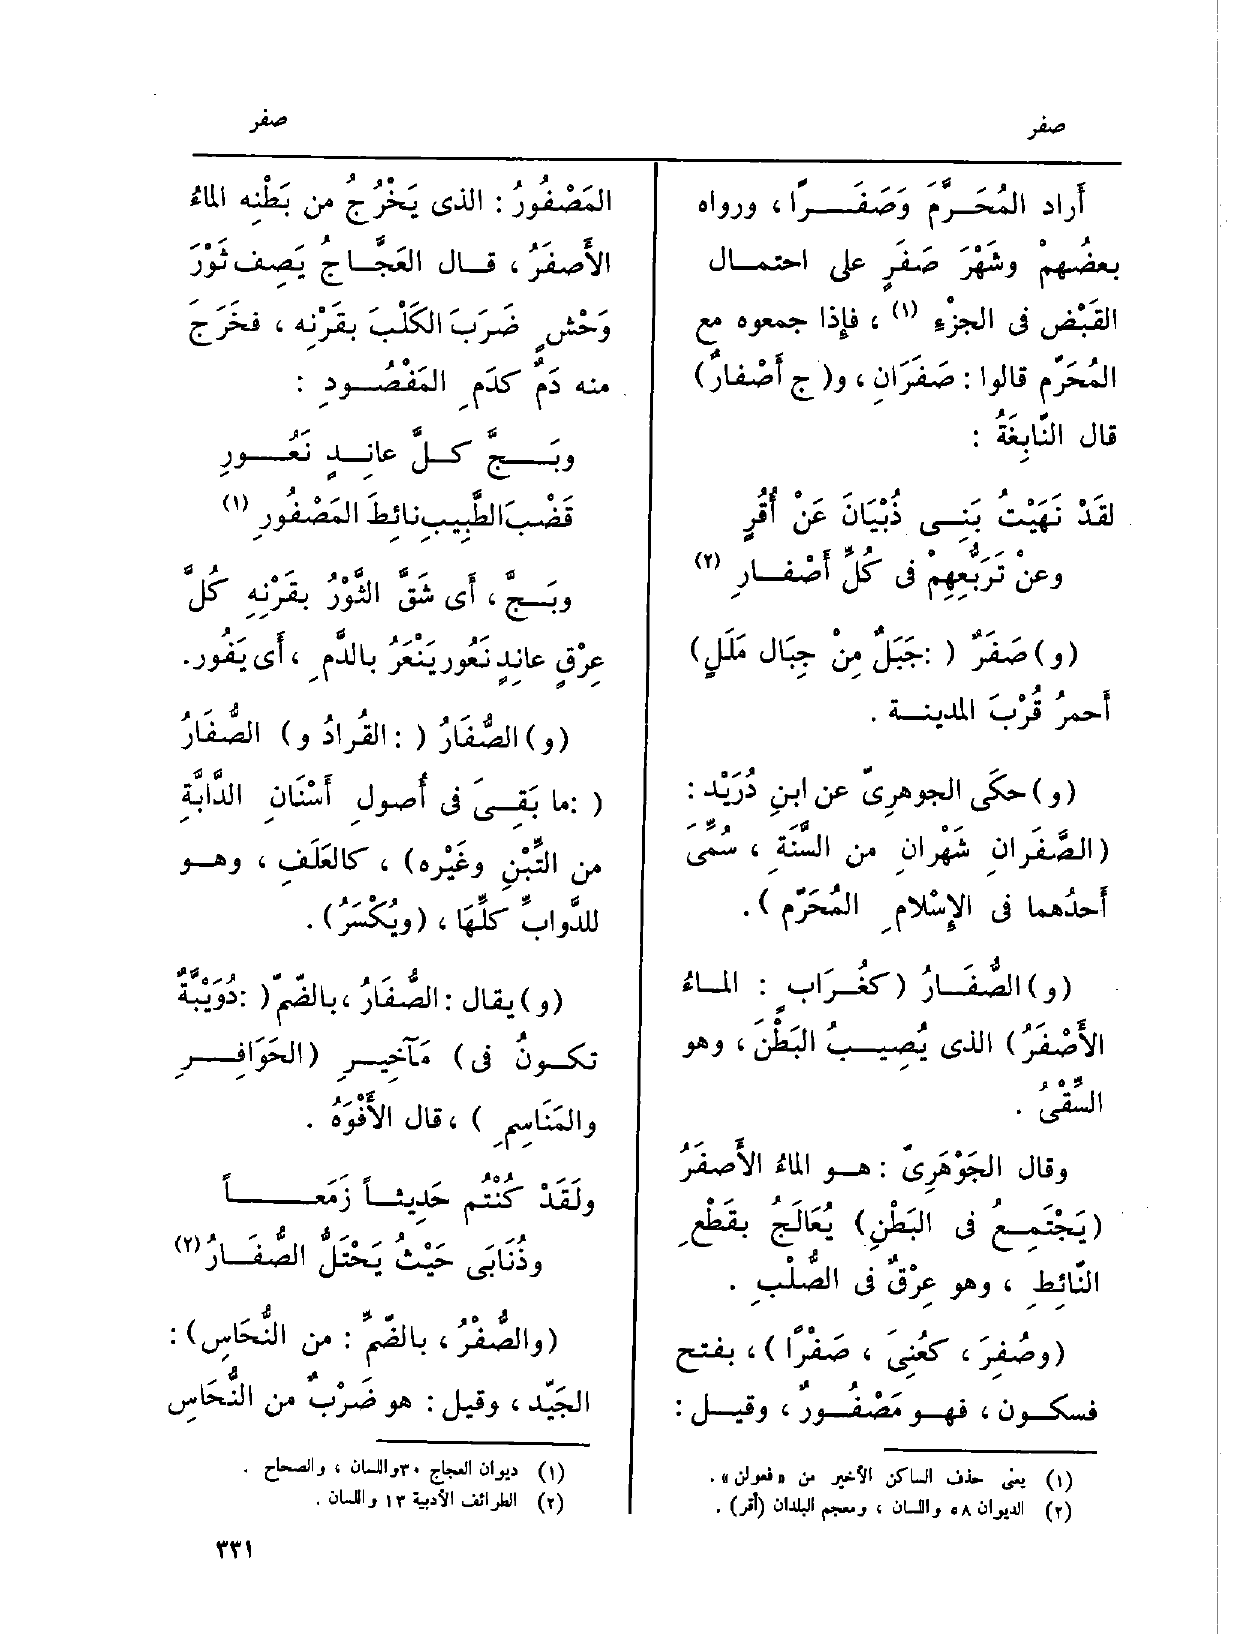 صفر
صفر
أراد المُحَرَّمَ وَصَفَرًا ، ورواه
بعضُهمْ وشَهْرَ صَفَرٍ على احتمال
القَبْض فى الجزْءِ (١) ، فإذا جمعوه مع
المُحَرَّم قالوا : صَفَرَانِ ، و( ج أَصْفارٌ )
قال النّابِغَةُ :
لقَدْ نَهَيْتُ بَنِى ذُبْيَانَ عَنْ أُقُرٍ
وعنْ تَرَبُّعِهِمْ فى كُلِّ أَصْفارِ (٢)
(و) صَفَرٌ ( :جَبَلٌ مِنْ جِبَال مَلَلٍ)
أَحمرُ قُرْبَ المدينة .
(و) حكَى الجوهرىّ عن ابنِ دُرَيْد :
(الصَّفَرانِ شَهْرانِ من السَّنَةِ ، سُمِّىَ
أَحدُهما فى الإِسْلامِ المُحَرّم ) .
(و) الصُّفَارُ (كغُرَابٍ : الماءُ
الأَصْفَرُ ) الذى يُصِيبُ البَطْنَ ، وهو
السِّقْىُ .
وقال الجَوْهَرِىّ : هو الماءُ الأَصفَرُ
(يَجْتَمِعُ فى البَطْنِ) يُعَالَجُ بقَطْعِ
النّائِطِ ، وهو عِرْقٌ فى الصُّلْبِ .
(وصُفِرَ ، كعُنِىَ ، صَفْرًا ) ، بفتح
فسكون ، فهو مَصْفُورٌ ، وقيل :
المَصْفُورُ : الذى يَخْرُجُ من بَطْنِه الماءُ
الأَصفَرُ ، قال العَجَّاجُ يَصِف ثَوْرَ
وَحْشٍ ضَرَبَ الكَلْبَ بقَرْنِه ، فخَرَجَ
منه دَمٌ كدَمِ المَفْصُودِ :
وبَجَّ كلَّ عانِدٍ نَعُورِ
قَضْبَ الطَّبِيبِ نائِطَ المَصْفُورِ (١)
وبَجَّ ، أَى شَقَّ الثَّوْرُ بقَرْنِهِ كُلَّ
عِرْقٍ عانِدٍ نَعُورٍ يَنْعَرُ بالدَّمِ ، أَى يَفُور.
(و) الصُّفَارُ ( :القُرادُ و) الصُّفَارُ
( :ما بَقِىَ فى أُصولِ أَسْنَانِ الدَّابَّةِ
من التِّبْنِ وغَيْرِه) ، كالعَلَفِ ، وهو
للدَّوابِّ كلِّهَا ، (ويُكْسَرُ).
(و) يقال : الصُّفَارُ ، بالضّمّ ( :دُوَيْبَّةٌ
تكونُ فى) مَآخِيرِ (الحَوَافِرِ
والمَنَاسِمِ ) ، قال الأَفْوَهُ .
ولَقَدْ كُنْتُم حَدِيثاً زَمَعاً
وذُنَابَى حَيْثُ يَحْتَلُّ الصُّفَارُ (٢)
(والصُّفْرُ ، بالضّمِّ : من النُّحَاسِ) :
الجَيّد ، وقيل : هو ضَرْبٌ من النُّحَاس
(١) يعنى حذف الساكن الأخير من «فعولن» .
(٢) الديوان ٥٨ واللسان ، ومعجم البلدان (أقر) .
(١) ديوان العجاج ٣٠ واللسان ، والصحاح .
(٢) الطرائف الأدبية ١٣ واللسان .
٣٣١